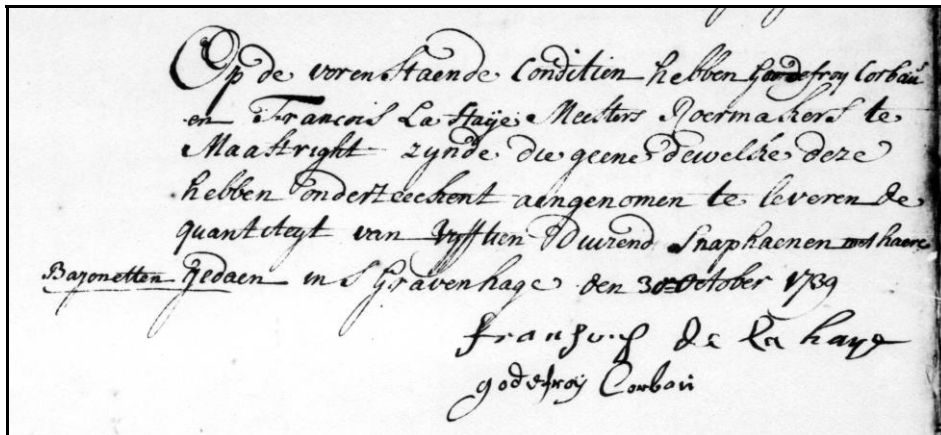 Op de vorenstaende Conditien hebben Godefroy Corbau
en Francois La Haije Meesters Roermakers te
Maastright zynde die geene dewelke deze
hebben onderteeckent aangenomen te leveren de
quantiteyt van vyfftien Duizend Snaphaenen met haere
Bajonetten gedaen in S Gravenhage den 30 October 1739
fransois de la haye
godefroij Corbau